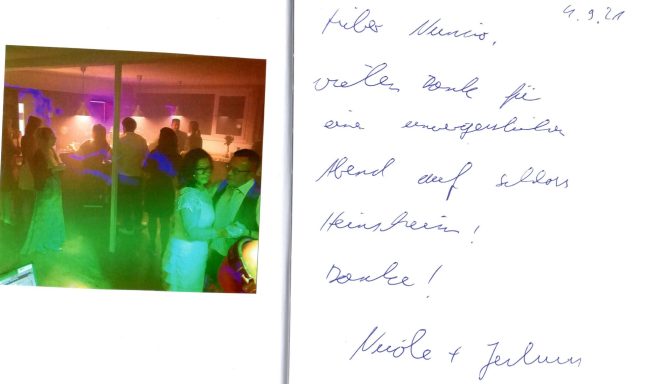 4.9.21
Lieber Nuncio,
vielen Dank für
eine unvergesslichen
Abend auf schloss
Heinsheim!
Danke!
Nicole +